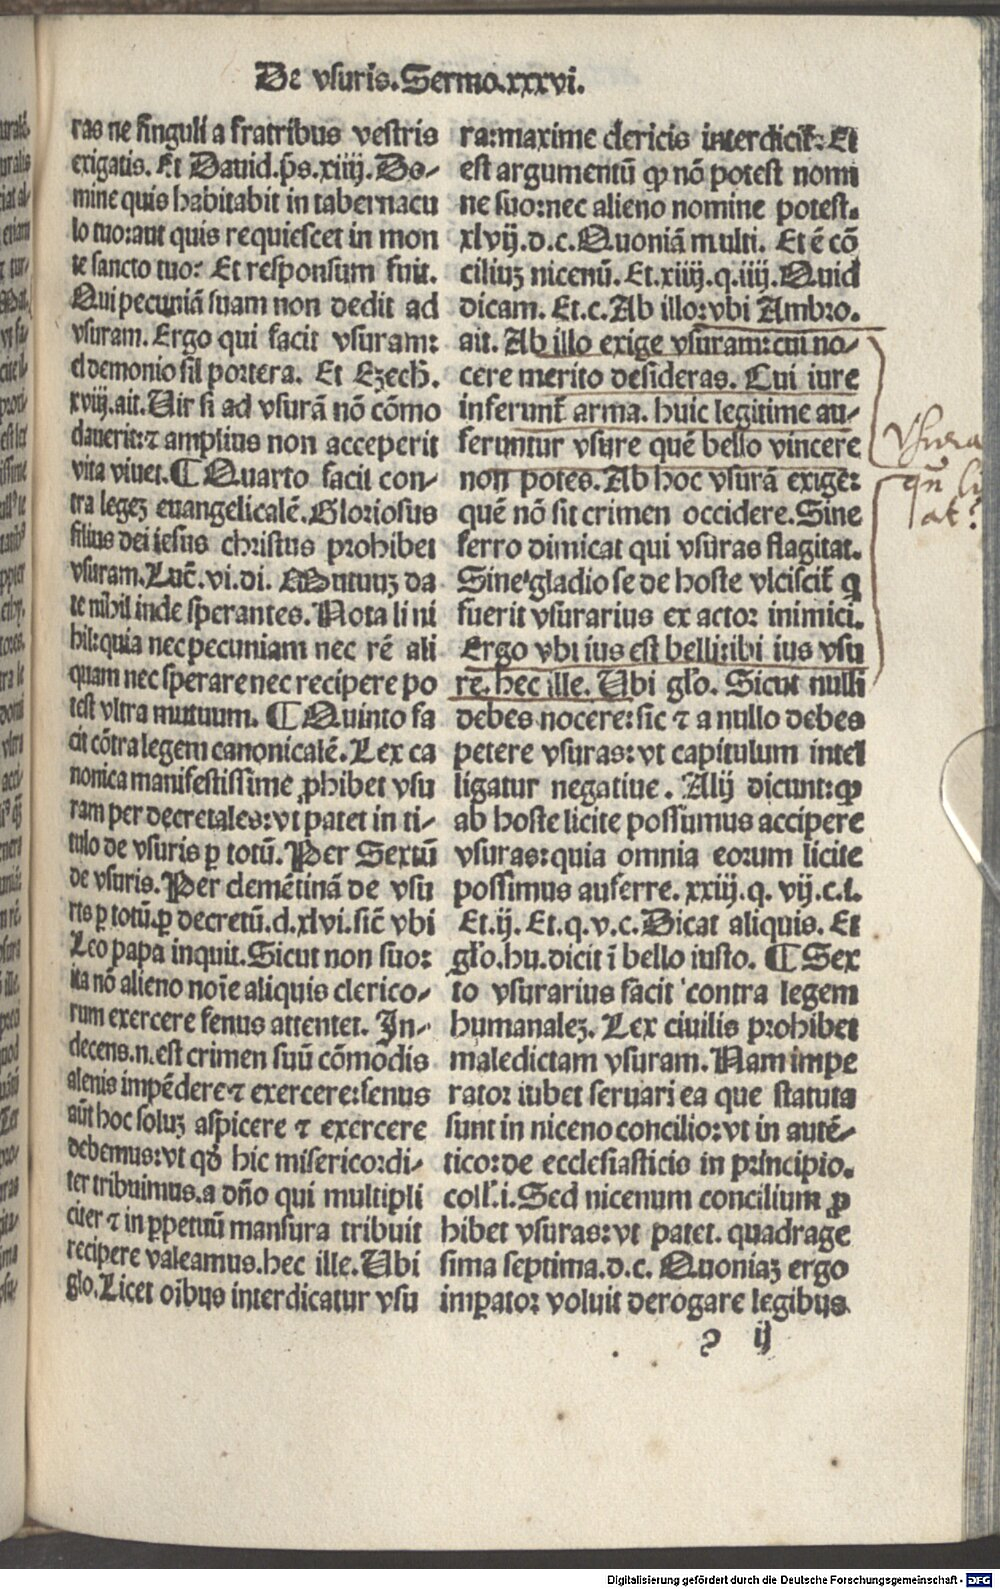 De vsuris.Sermo.xxxvi.
ras ne singuli a fratribus vestris
exigatis. Et Dauid.p̄s.xiiij.Do-
mine quis habitabit in tabernacu
lo tuo:aut quis requiescet in mon
te sancto tuo? Et responsum fuit.
Qui pecuniā suam non dedit ad
vsuram.Ergo qui facit vsuram:
el demonio sil portera. Et Ezech̄.
xviij.ait.Uir si ad vsurā nō cōmo
dauerit:⁊ amplius non acceperit
vita viuet.¶ Quarto facit con-
tra legeʒ euangelicalē.Gloriosus
filius dei iesus christus prohibet
vsuram.Luc̄.vi.di. Mutuuʒ da
te nihil inde sperantes.Nota li ni
hil:quia nec pecuniam nec rē ali
quam nec sperare nec recipere po
test vltra mutuum. ¶ Quinto fa
cit cōtra legem canonicalē.Lex ca
nonica manifestissime ꝓhibet vsu
ram per decretales:vt patet in ti-
tulo de vsuris ꝑ totū.Per Sextū
de vsuris.Per clemētinā de vsu
ris ꝑ totū.ꝑ decretū.d.xlvi.sic̄ vbi
Leo papa inquit.Sicut non suo:
ita nō alieno noīe aliquis clerico-
rum exercere fenus attentet. In-
decens.n.est crimen suū cōmodis
alenis impēdere ⁊ exercere:fenus
aūt hoc soluʒ aspicere ⁊ exercere
debemus:vt qđ hic misericordi-
ter tribuimus.a dño qui multipli
citer ⁊ in ꝑpetuū mansura tribuit
recipere valeamus.hec ille.Ubi
glo.Licet oībus interdicatur vsu
ra:maxime clericis interdicit̄: Et
est argumentū ꝙ nō potest nomi
ne suo:nec alieno nomine potest.
xlvij.d.c.Quoniā multi. Et ē cō
ciliuʒ nicenū. Et.xiiij.q.iiij.Quid
dicam. Et.c.Ab illo:vbi Ambro.
ait. Ab illo exige vsuram:cui no-
cere merito desideras. Cui iure
inferunt̄ arma. huic legitime au-
feruntur vsure quē bello vincere
non potes.Ab hoc vsurā exige:
quē nō sit crimen occidere.Sine
ferro dimicat qui vsuras flagitat.
Sine gladio se de hoste vlciscit̄ q
fuerit vsurarius exactor inimici.
Ergo vbi ius est belli:ibi ius vsu
re.hec ille. Ubi gl̄o. Sicut nulli
debes nocere:sic ⁊ a nullo debes
petere vsuras:vt capitulum intel
ligatur negatiue. Alij dicunt:ꝙ
ab hoste licite possumus accipere
vsuras:quia omnia eorum licite
possimus auferre.xxiij.q. vij.c.i.
Et.ij. Et.q.v.c.Dicat aliquis. Et
gl̄o.hu.dicit ī bello iusto. ¶ Sex
to vsurarius facit contra legem
humanaleʒ. Lex ciuilis prohibet
maledictam vsuram.Nam impe
rator iubet seruari ea que statuta
sunt in niceno concilio:vt in autē-
tico:de ecclesiasticis in principio.
coll̄.i.Sed nicenum concilium ꝓ
hibet vsuras:vt patet. quadrage
sima septima.d.c. Quoniaʒ ergo
imꝑator voluit derogare legibus
ij
Vsura
Digitalisierung gefördert durch die Deutsche Forschungsgemeinschaft - DFG